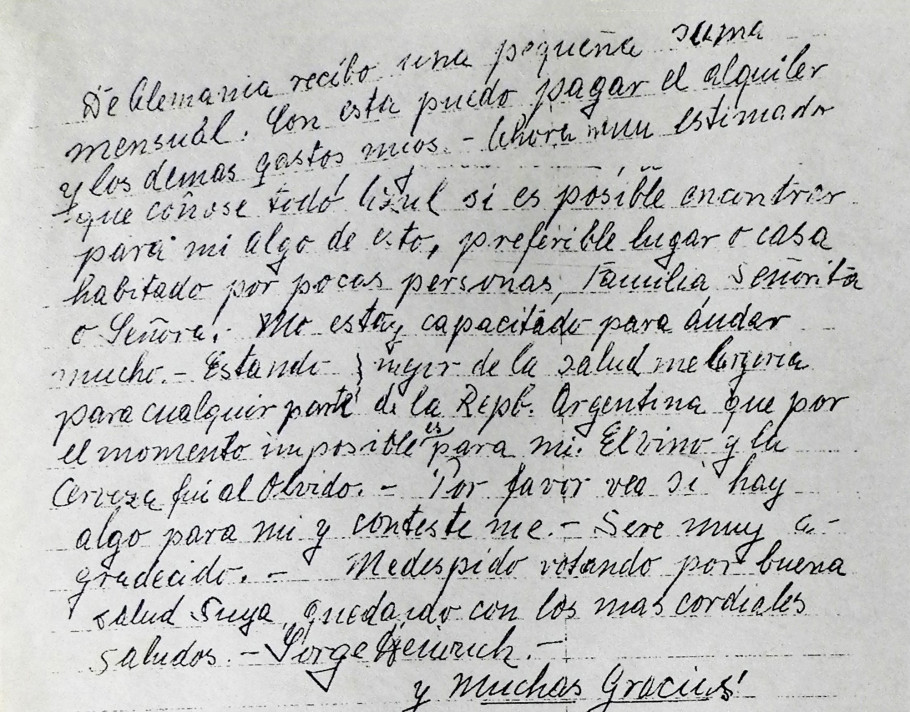 De Alemania recibo una pequeña suma
mensuál. Con esta puedo pagar el alquiler
y los demas gastos mios. - Ahora muu estimado
que coñose todó Azul si es posíble encontrar
para mi algo de esto, preferible lugar o casa
habitado por pocas personas, Familia Señorita
o Señora. - No estoy capacitado para ándar
mucho. - Estando mejor de la salud me largaria
para cualquir parte de la Repb. Argentina que por
el momento imposible es para mi. El vino y la
Cerveza fui al Olvido. - Por favor vea si hay
algo para mi y conteste me. - Sere muy a-
gradecido. - Me despido votando por buena
salud Suya, quedando con los mas cordiales
saludos. - Jorge Heinrich. -
y Muchas Gracias!